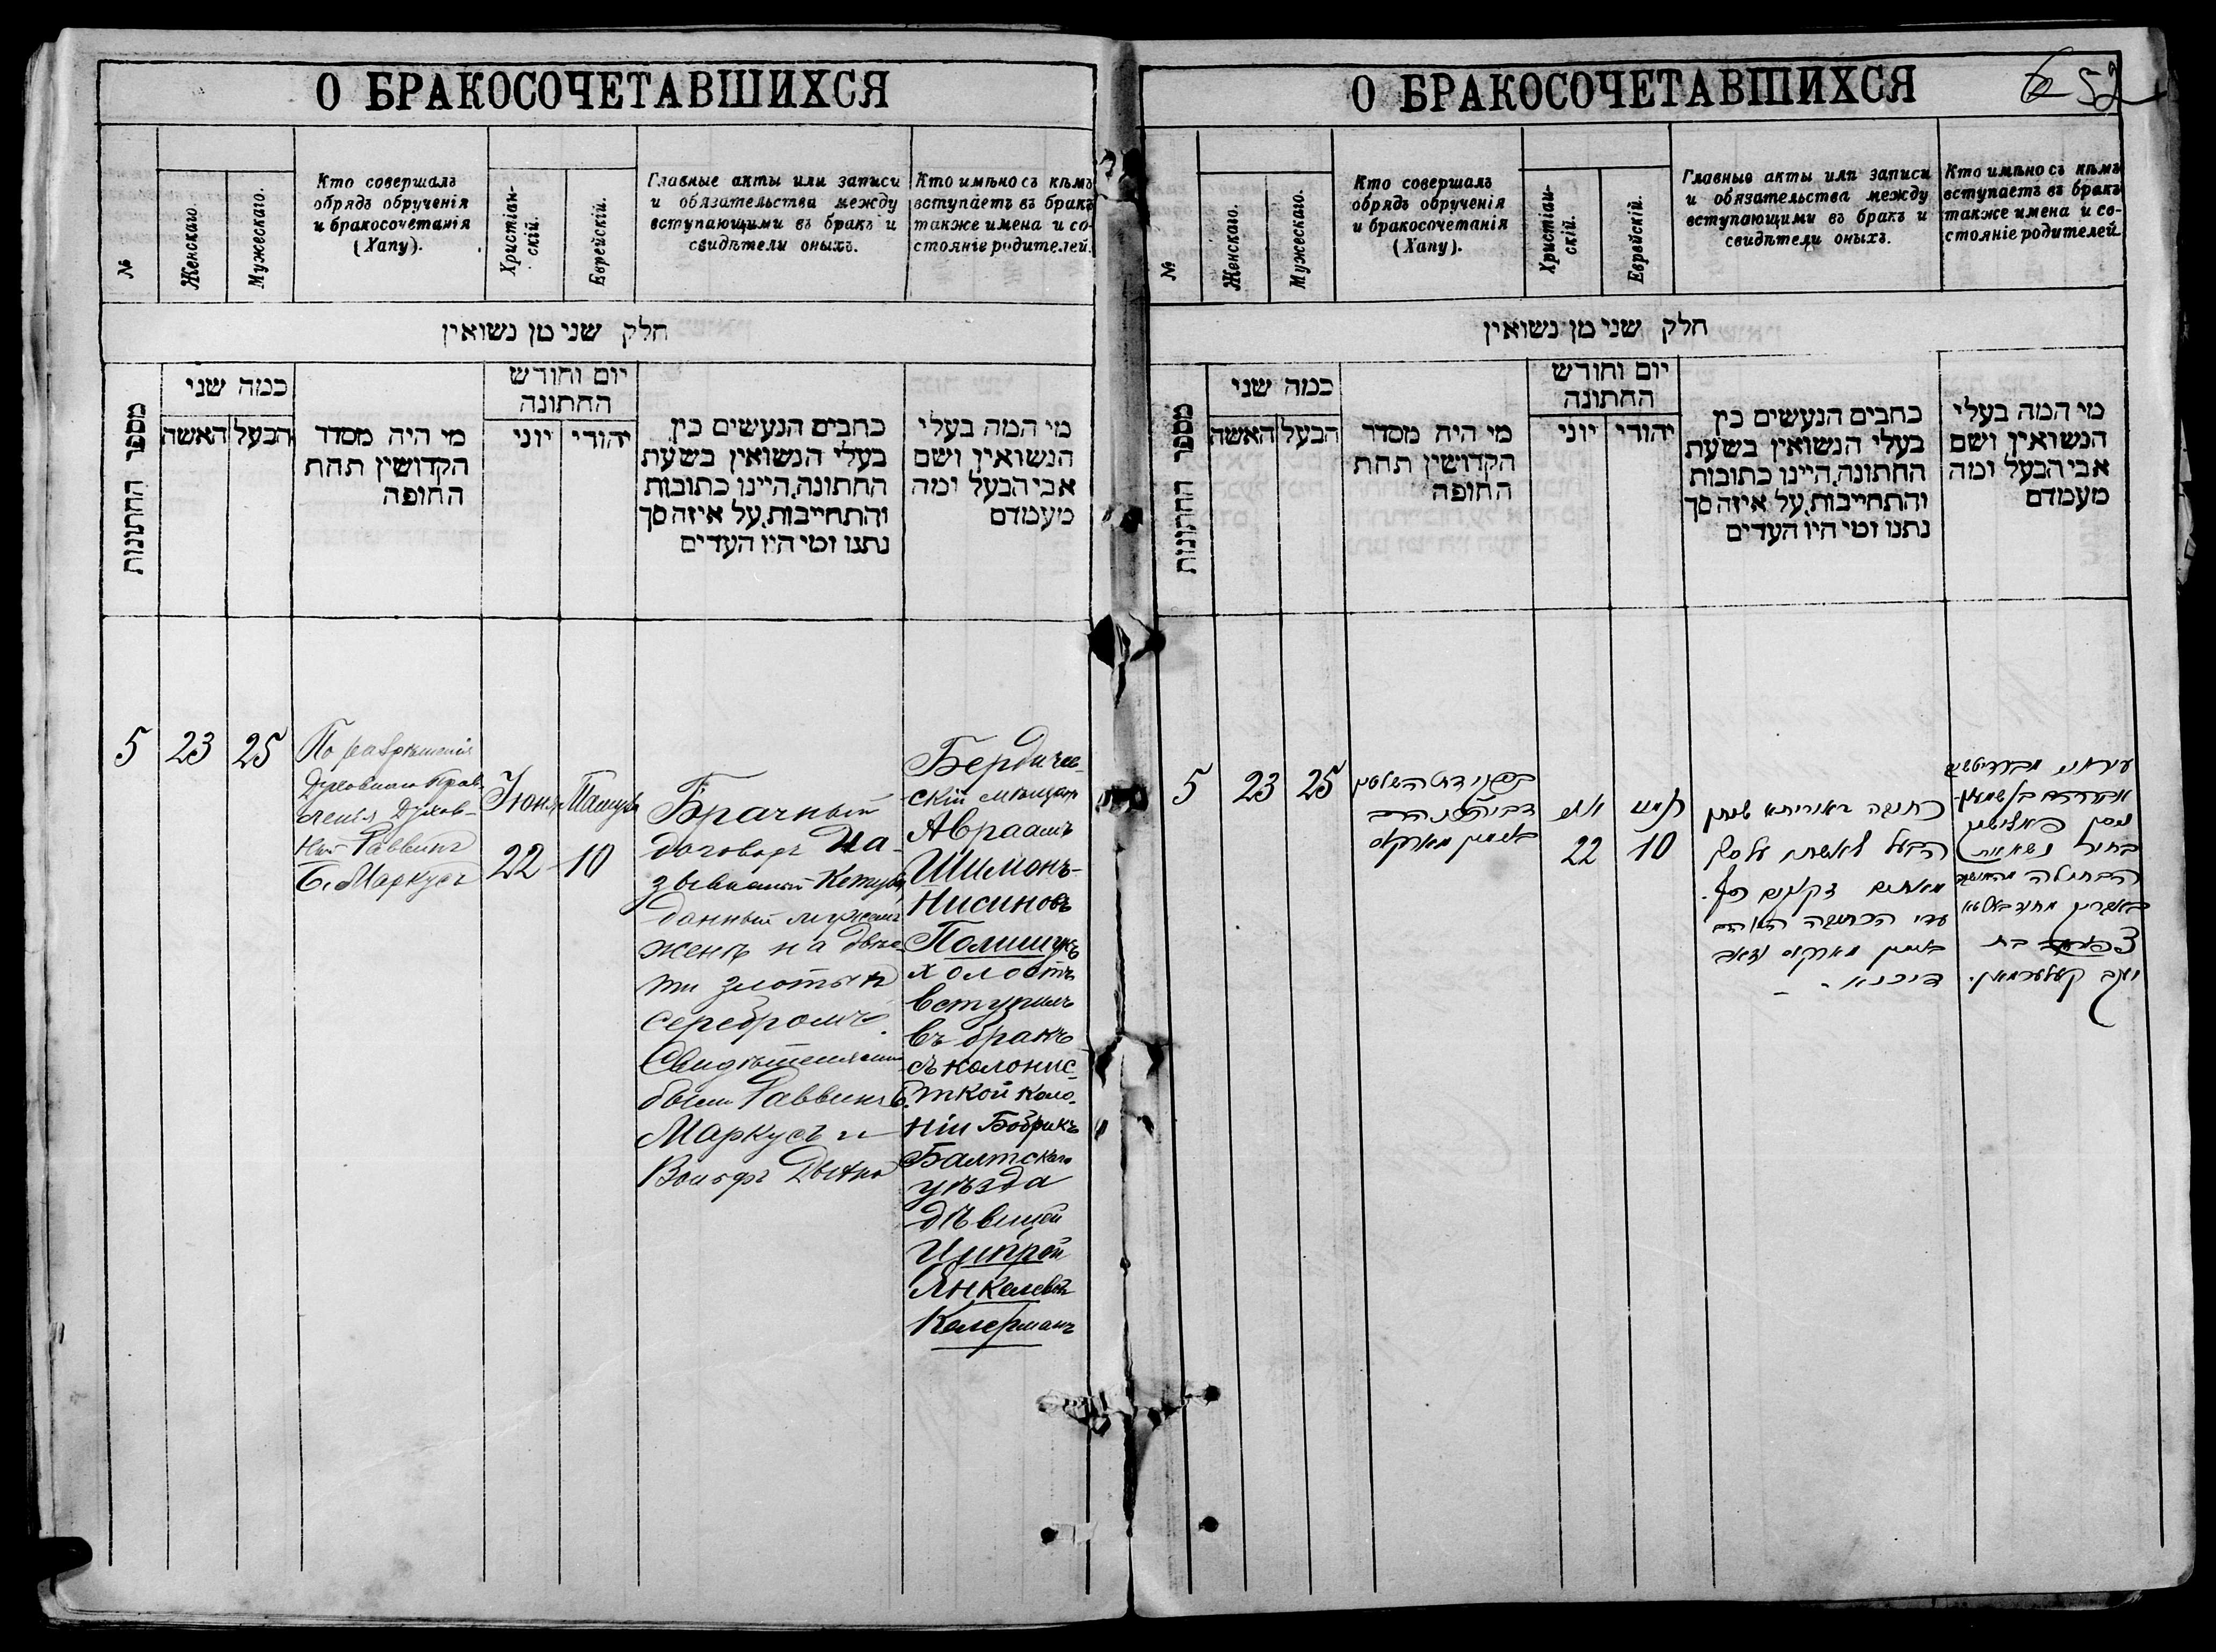 О БРАКОСОЧЕТАВШИХСЯ
№
Женскаго.
Мужескаго.
Кто совершалъ
обрядъ обрученія
и бракосочетанія
(Хапу).
Христіан-
скій.
Еврейскій.
Главные акты или записи
и обязательства между
вступающими въ бракъ и
свидѣтели оныхъ.
Кто имѣно съ кѣмъ
вступаетъ въ бракъ
также имена и со-
стояніе родителей.
חלק שני מן נשואין
מספר החתונות
כמה שני
האשה
הבעל
מי היה מסדר
הקדושין תחת
החופה
יום וחודש
החתונה
יוני
יהודי
כתבים הנעשים בין
בעלי הנשואין בשעת
החתונה, היינו כתובות
והתחייבות, על איזה סך
נתנו ומי היו העדים
מי המה בעלי
הנשואין ושם
אבי הבעל ומה
מעמדם
5
23
25
По разрѣшенія
Духовнаго Прав-
ленія Духов-
ный Раввинъ
Б. Маркусъ
Іюня
22
Тамузъ
10
Брачный
договоръ На-
зываемый Кетуба,
данный мужемъ
женѣ на двѣс-
ти злотыхъ
серебромъ.
Свидѣтелями
были Раввинъ Б.
Маркусъ и
Вольфъ
Бердичев-
скій мѣщан.
Авраамъ
Шимонъ-
Нисиновъ
Полищукъ
холостъ
вступилъ
въ бракъ
съ колонис-
ткой коло-
ніи Бобрикъ
Балтскаго
уѣзда
дѣвицей
Ципрой
Янкелевой
Келерманъ
О БРАКОСОЧЕТАВШИХСЯ
6 52
№
Женскаго.
Мужескаго.
Кто совершалъ
обрядъ обрученія
и бракосочетанія
(Хапу).
Христіан-
скій.
Еврейскій.
Главныя акты или записи
и обязательства между
вступающими въ бракъ и
свидѣтели оныхъ.
Кто имѣно съ кѣмъ
вступаетъ въ бракъ
также имена и со-
стояніе родителей.
חלק שני מן נשואין
מספר החתונות
כמה שני
האשה
הבעל
מי היה מסדר
הקדושין תחת
החופה
יום וחודש
החתונה
יוני
יהודי
כתבים הנעשים בין
בעלי הנשואין בשעת
החתונה, היינו כתובות
והתחייבות, על איזה סך
נתנו ומי היו העדים
מי המה בעלי
הנשואין ושם
אבי הבעל ומה
מעמדם
5
23
25
הרב
מארקוס
יוני
22
תמוז
10
כתובה דאורייתא שנתן
הבעל לאשתו על סך
מאתים זקוקים כסף.
עדי הכתובה
מארקוס וזאב
אברהם בן שמעון
ניסן פאלישוק
בחור
הבתולה
בת
יעקב קעלערמאן.